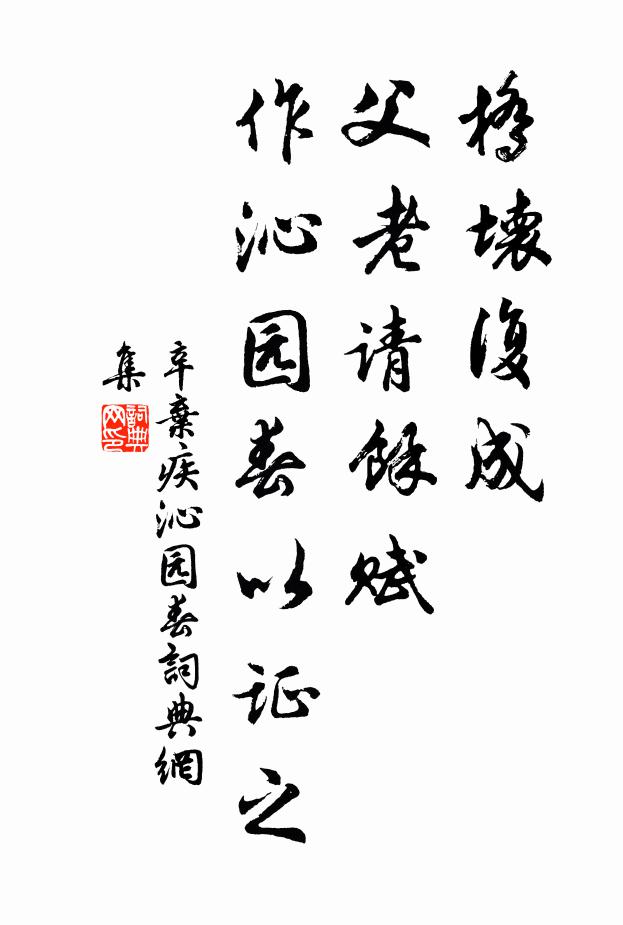 橋壊復成
父老请餘赋
作沁园春以证之
辛棄疾沁园春詞典網
集
詞典网印